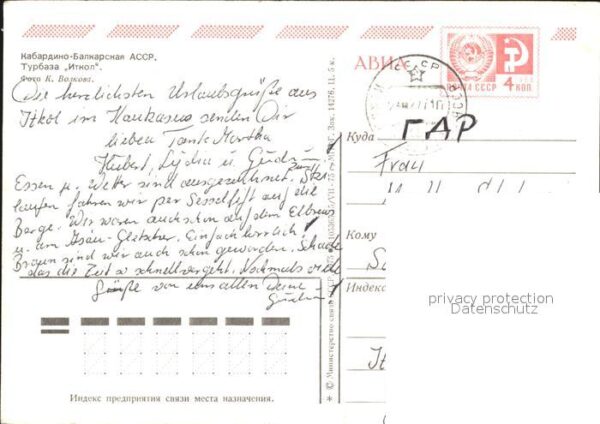 Кабардино-Балкарская АССР.
Турбаза „Иткол".
Фото К. Волкова.
Die herzlichsten Urlaubsgrüße aus
Itkol im Kaukasus senden Dir
lieben Tante Martha
Hubert, Lydia u.
Essen u. Wetter sind ausgezeichnet. Zum Ski
laufen fahren wir per Sessellift auf die
Berge. Wir waren auch schon auf dem Elbrus
u. am Gletscher. Einfach herrlich!
Braun sind wir auch schon geworden. Schade
das die Zeit so schnell vergeht. Nochmals viele
Grüße von uns allen Deine
Индекс предприятия связи места назначения.
© Министерство связи СССР
АВИА
СССР
ПОЧТА СССР
4 КОП.
Куда
ГДР
Frau
Кому
Индекс
privacy protection
Datenschutz